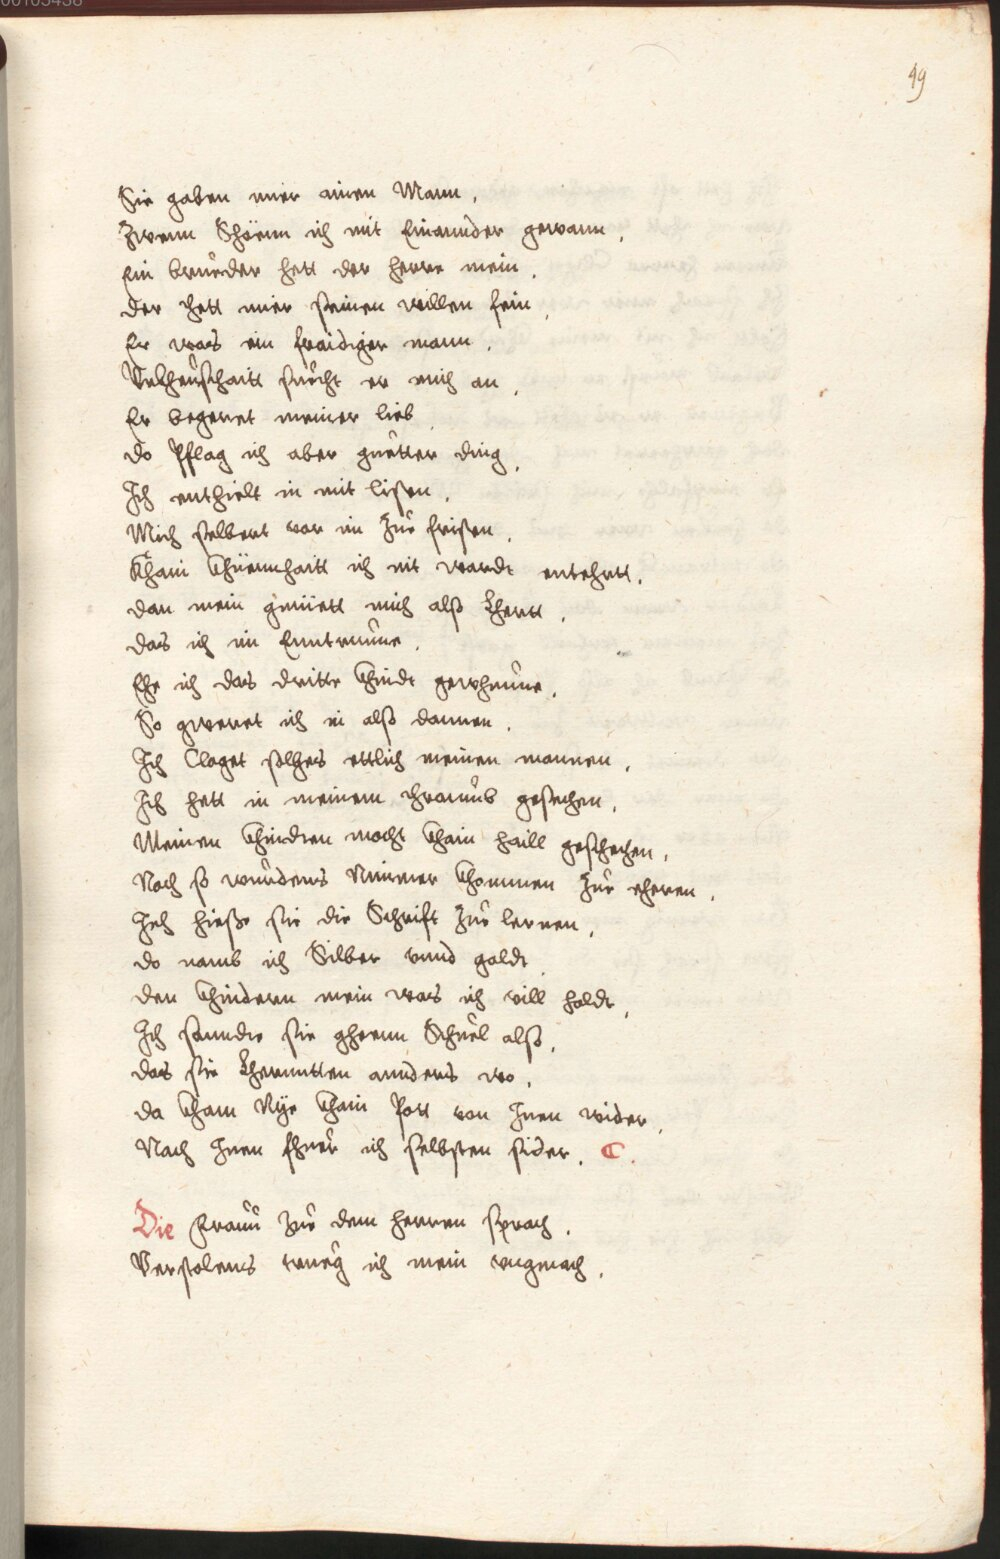 49
Sie gaben mier ainen Mann,
Zwenn Schöenn ich mit Einannder gewann,
Ein bruͤeder hett der herre mein,
der thett mier seinen willen sein,
Er was ein fraidiger mann,
Velhenschaitt suecht er mich an,
Er begeret meiner lieb,
do Pflag ich aber guetter ding,
Ich enthielt in mit listen,
Mich selbert vor im Zue fristen,
Khain khüennhaitt ich nit wardt entehrtt,
dan mein gmüett mich alß Lhertt,
das ich im Enntrünne,
Ehe ich das dritte khindt gewhünne,
So gweret ich in alß dannen,
Ich Claget solhes ettlich meinen mannen,
Ich hett in meinem thraumb gesechen,
Meinen khindten mocht khain haill geschechen,
Noch so wurdens Nimmer khommen Zue eheren,
Ich hiesse sie die Schrift Zue lernen,
do namb ich Silber vnnd goldt,
den khindern mein was ich vill holdt,
Ich sanndte sie gheenn Schuel alß,
das sie Lhernntten annders wo,
da kham Nye khain Pott von Inen wider,
Nach Inen fhuer ich selbsten sider,
Die Frauu Zue dem herren sprach,
Verstolens trueg ich mein vngmach,